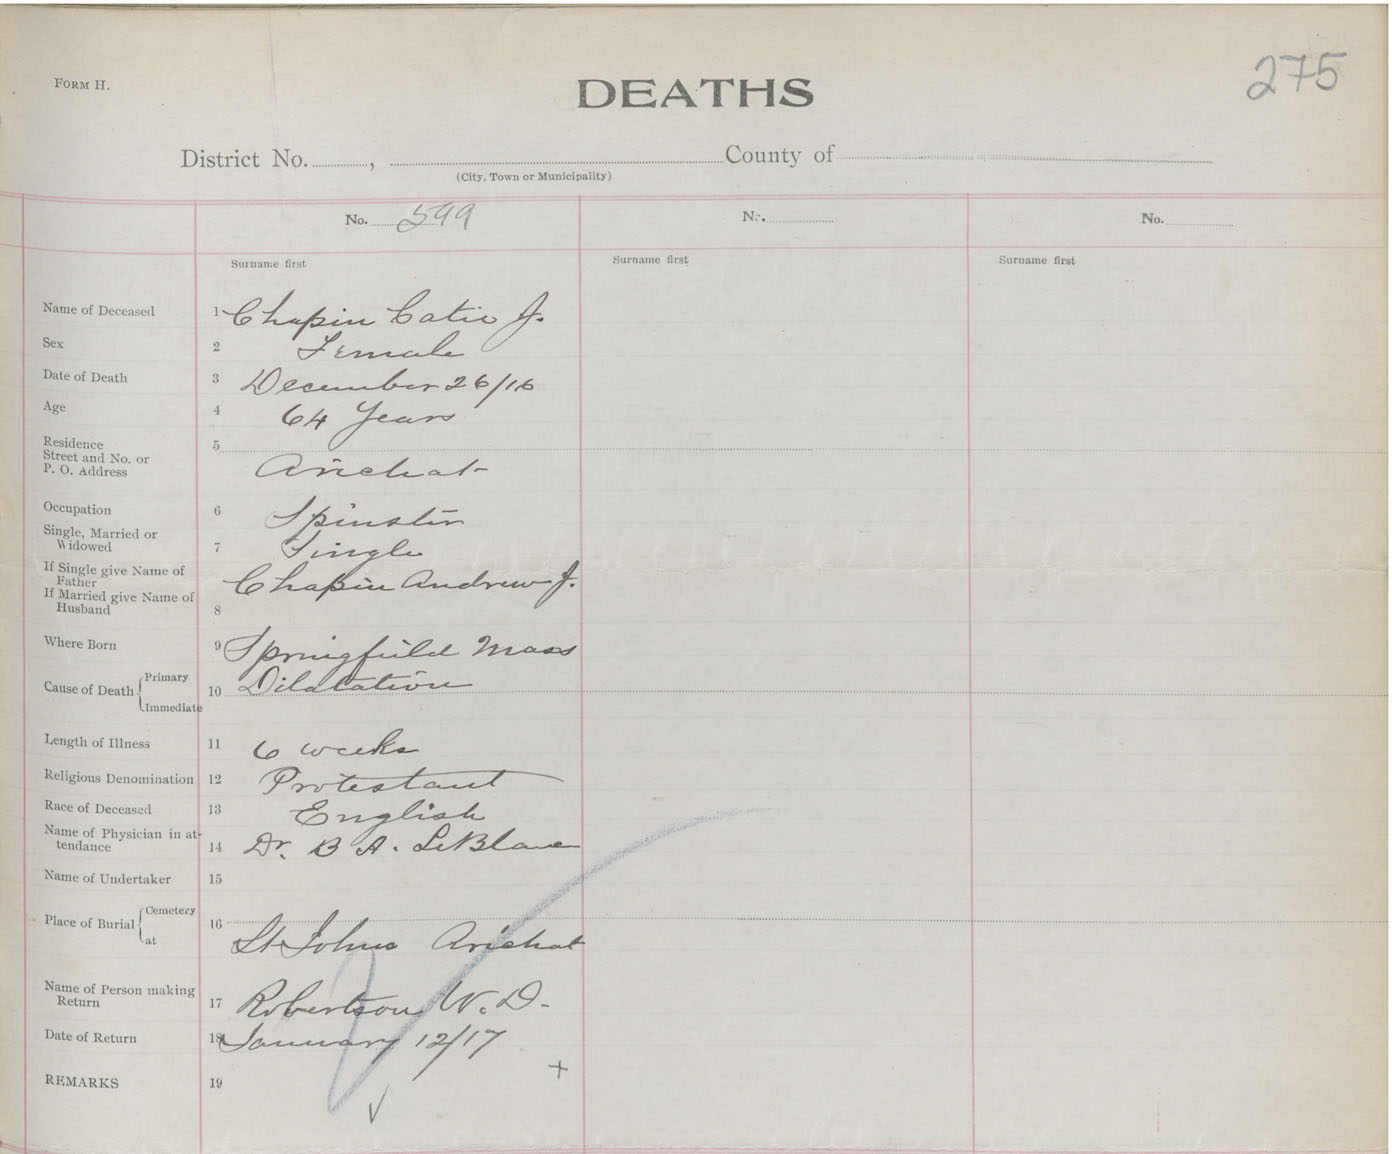 275
FORM H.
DEATHS
District No. , County of
(City, Town or Municipality)
No. 599 No. No.
Surname first Surname first Surname first
Name of Deceased 1 Chapin Catie J.
Sex 2 Female
Date of Death 3 December 26/16
Age 4 64 Years
Residence 5
Street and No. or
P. O. Address Arichat
Occupation 6 Spinster
Single, Married or
Widowed 7 Single
If Single give Name of
Father Chapin Andrew J.
If Married give Name of
Husband 8
Where Born 9 Springfield Mass
Cause of Death { Primary
10 Dilatation
Immediate
Length of Illness 11 6 weeks
Religious Denomination 12 Protestant
Race of Deceased 13 English
Name of Physician in at-
tendance 14 Dr. B A. LeBlanc
Name of Undertaker 15
Place of Burial { Cemetery 16
at St Johns Arichat
Name of Person making
Return 17 Robertson W. D.
Date of Return 18 January 12/17
REMARKS 19